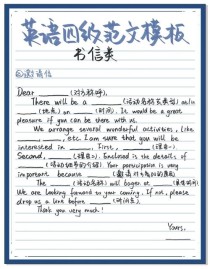 英语四级范文模板
书信类
①邀请信
Dear ____(对方称呼),
There will be a ____(活动名称或类型) at/in
(地点) on ____(时间). It would be a great
pleasure if you can be there with us.
We arrange several wonderful activities, (the
____, etc. I am sure that you will be
interested in ____. First, ____(理由一).
Second, ____(理由二). Enclosed is the details of
____. Your participation is very
important because ____.
The ____(活动名称) will begin at ____
We are looking forward to your coming. If not, please
drop us a line before ____.
Thank you very much!
Yours,